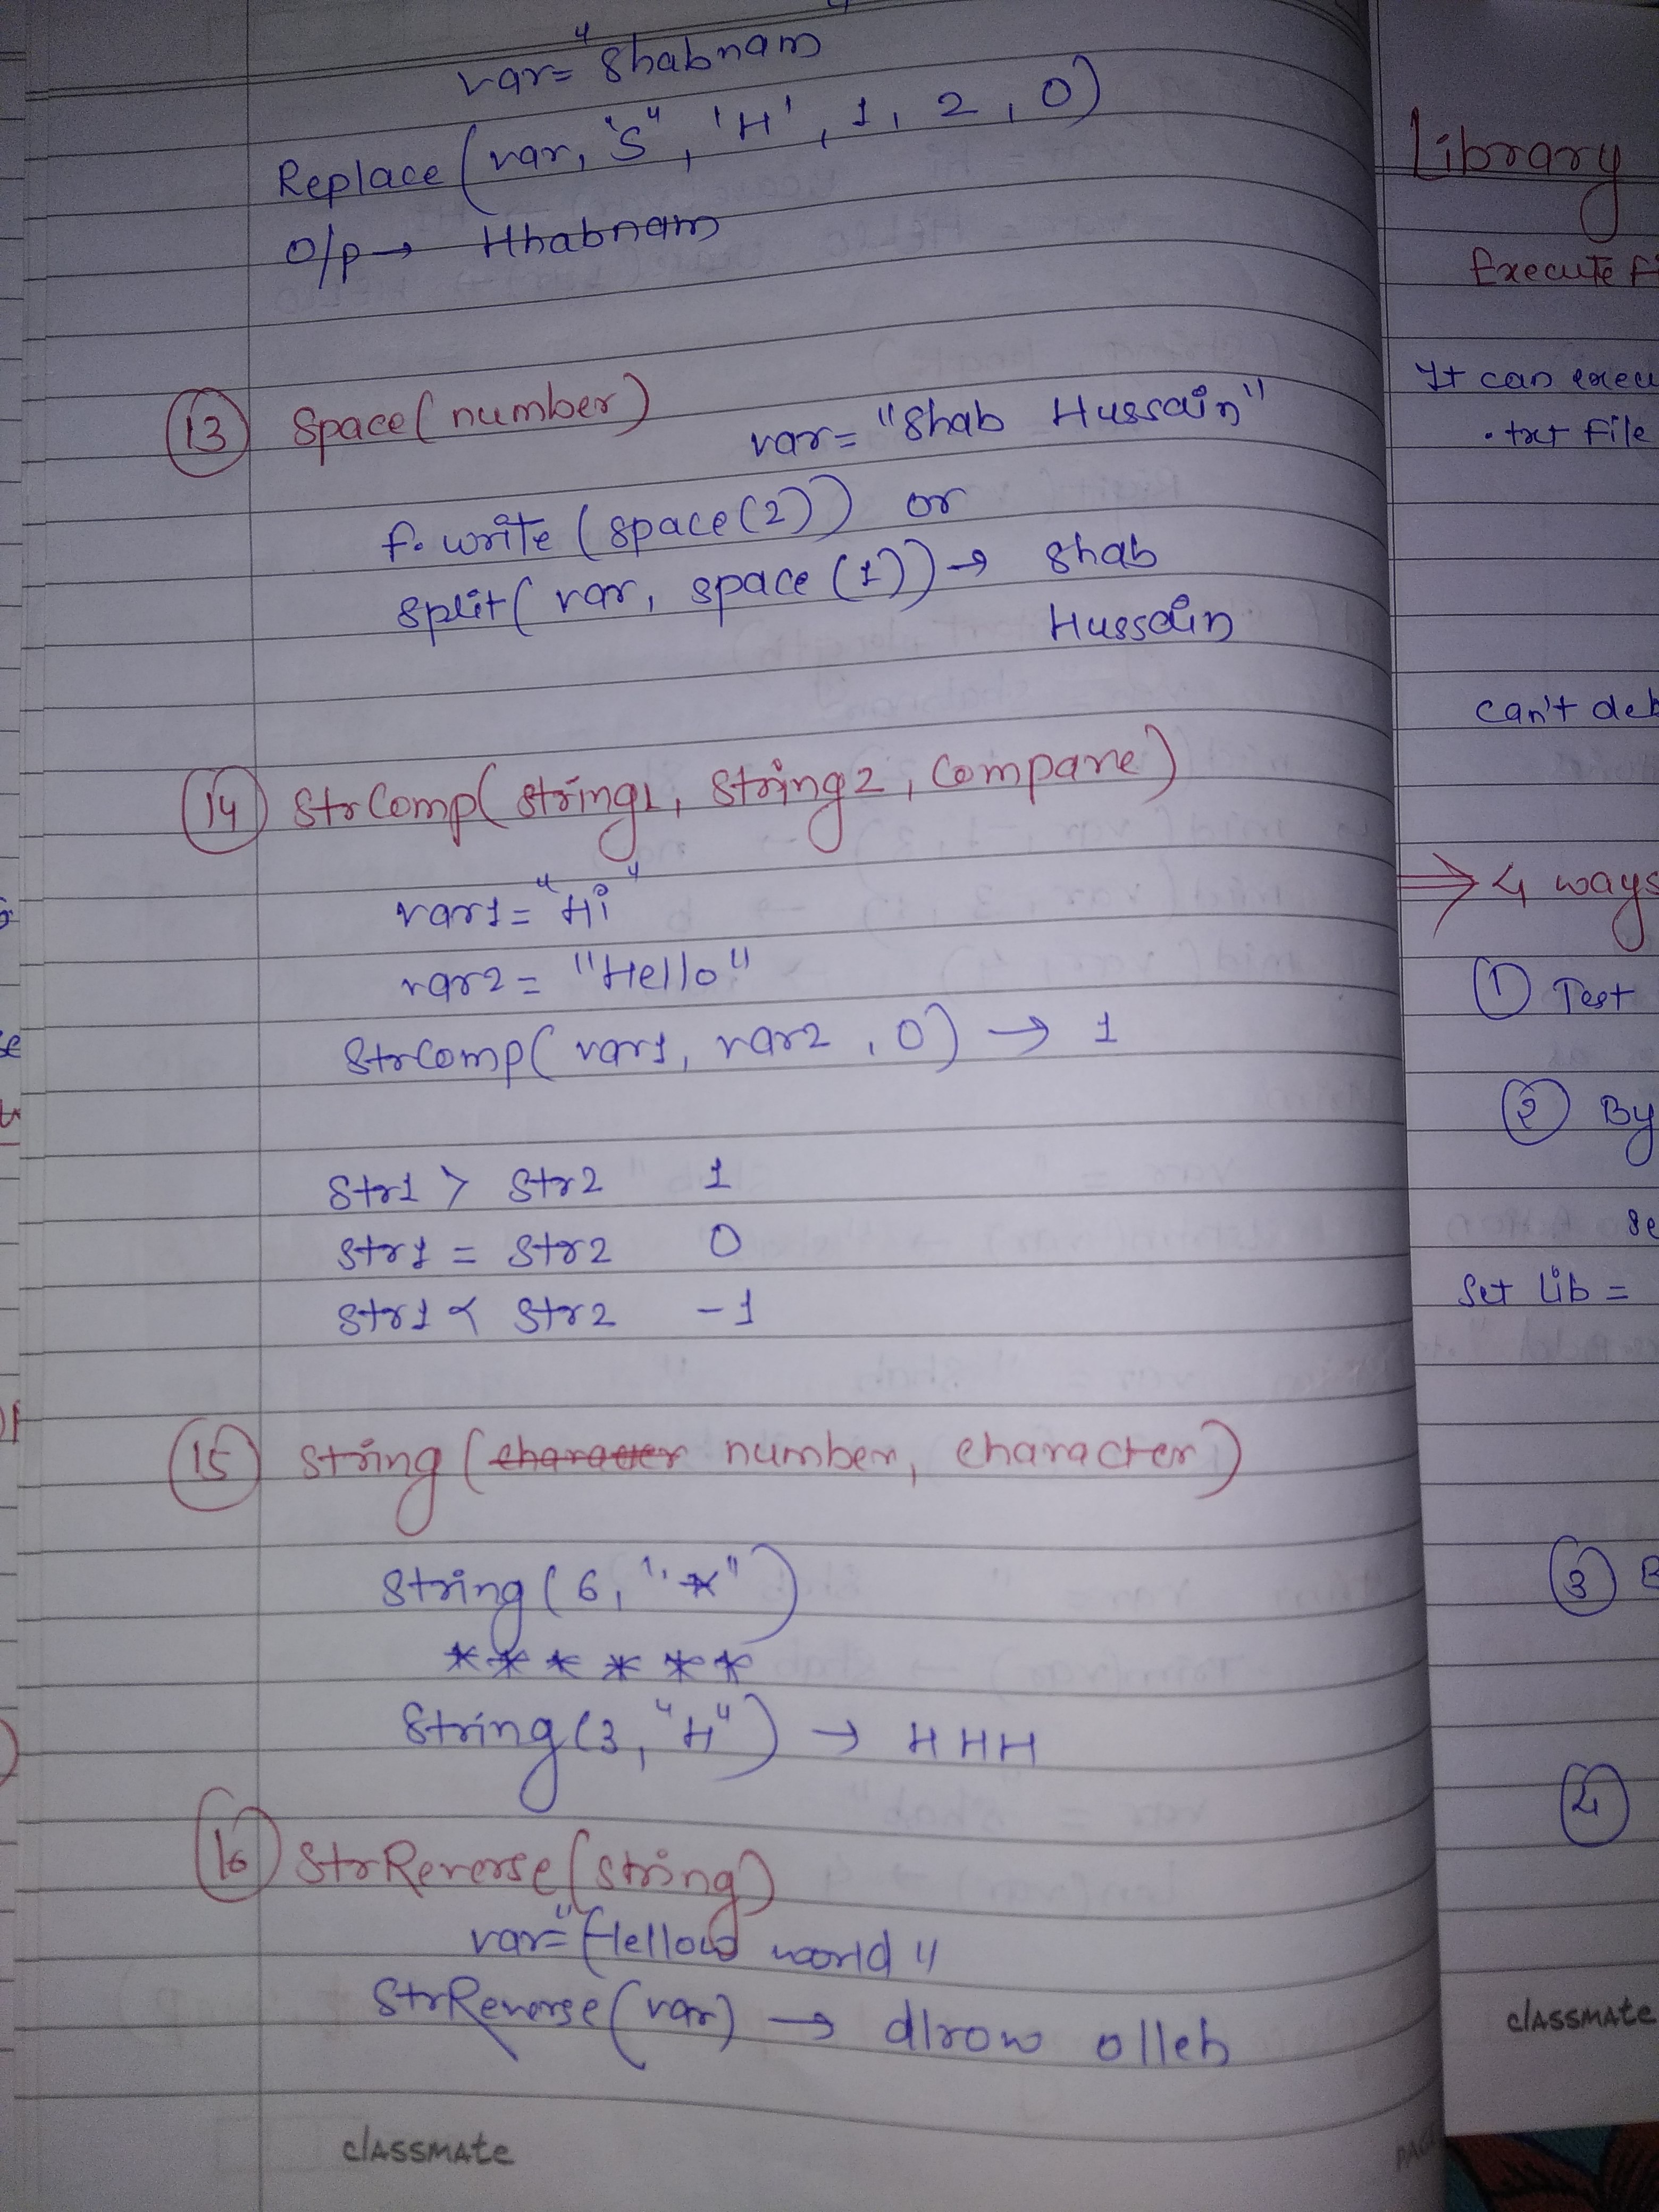 var= "Shabnam
Replace(var, "S", 'H', 1, 2, 0)
O/p → Hhabnam
13 Space(number)
var= "Shab Hussain"
f. write (space(2)) or
split( var, space (1)) → Shab
Hussain
14 StrComp( string1, string2, Compare)
var1= "Hi"
var2= "Hello"
StrComp( var1, var2, 0) → 1
Str1 > Str2 1
Str1 = Str2 0
Str1 < Str2 -1
15 String (character number, character)
String( 6, "*")
* * * * * *
String(3, "H") → HHH
16 StrReverse(string)
var="Hellow world"
StrReverse(var) → dlrow olleh
classmate
Library
Execute Fi
It can execu
.txt File
can't deb
⇒ 4 ways
1 Test
2 By
se
Set lib =
3 B
4
classmate
PAGE